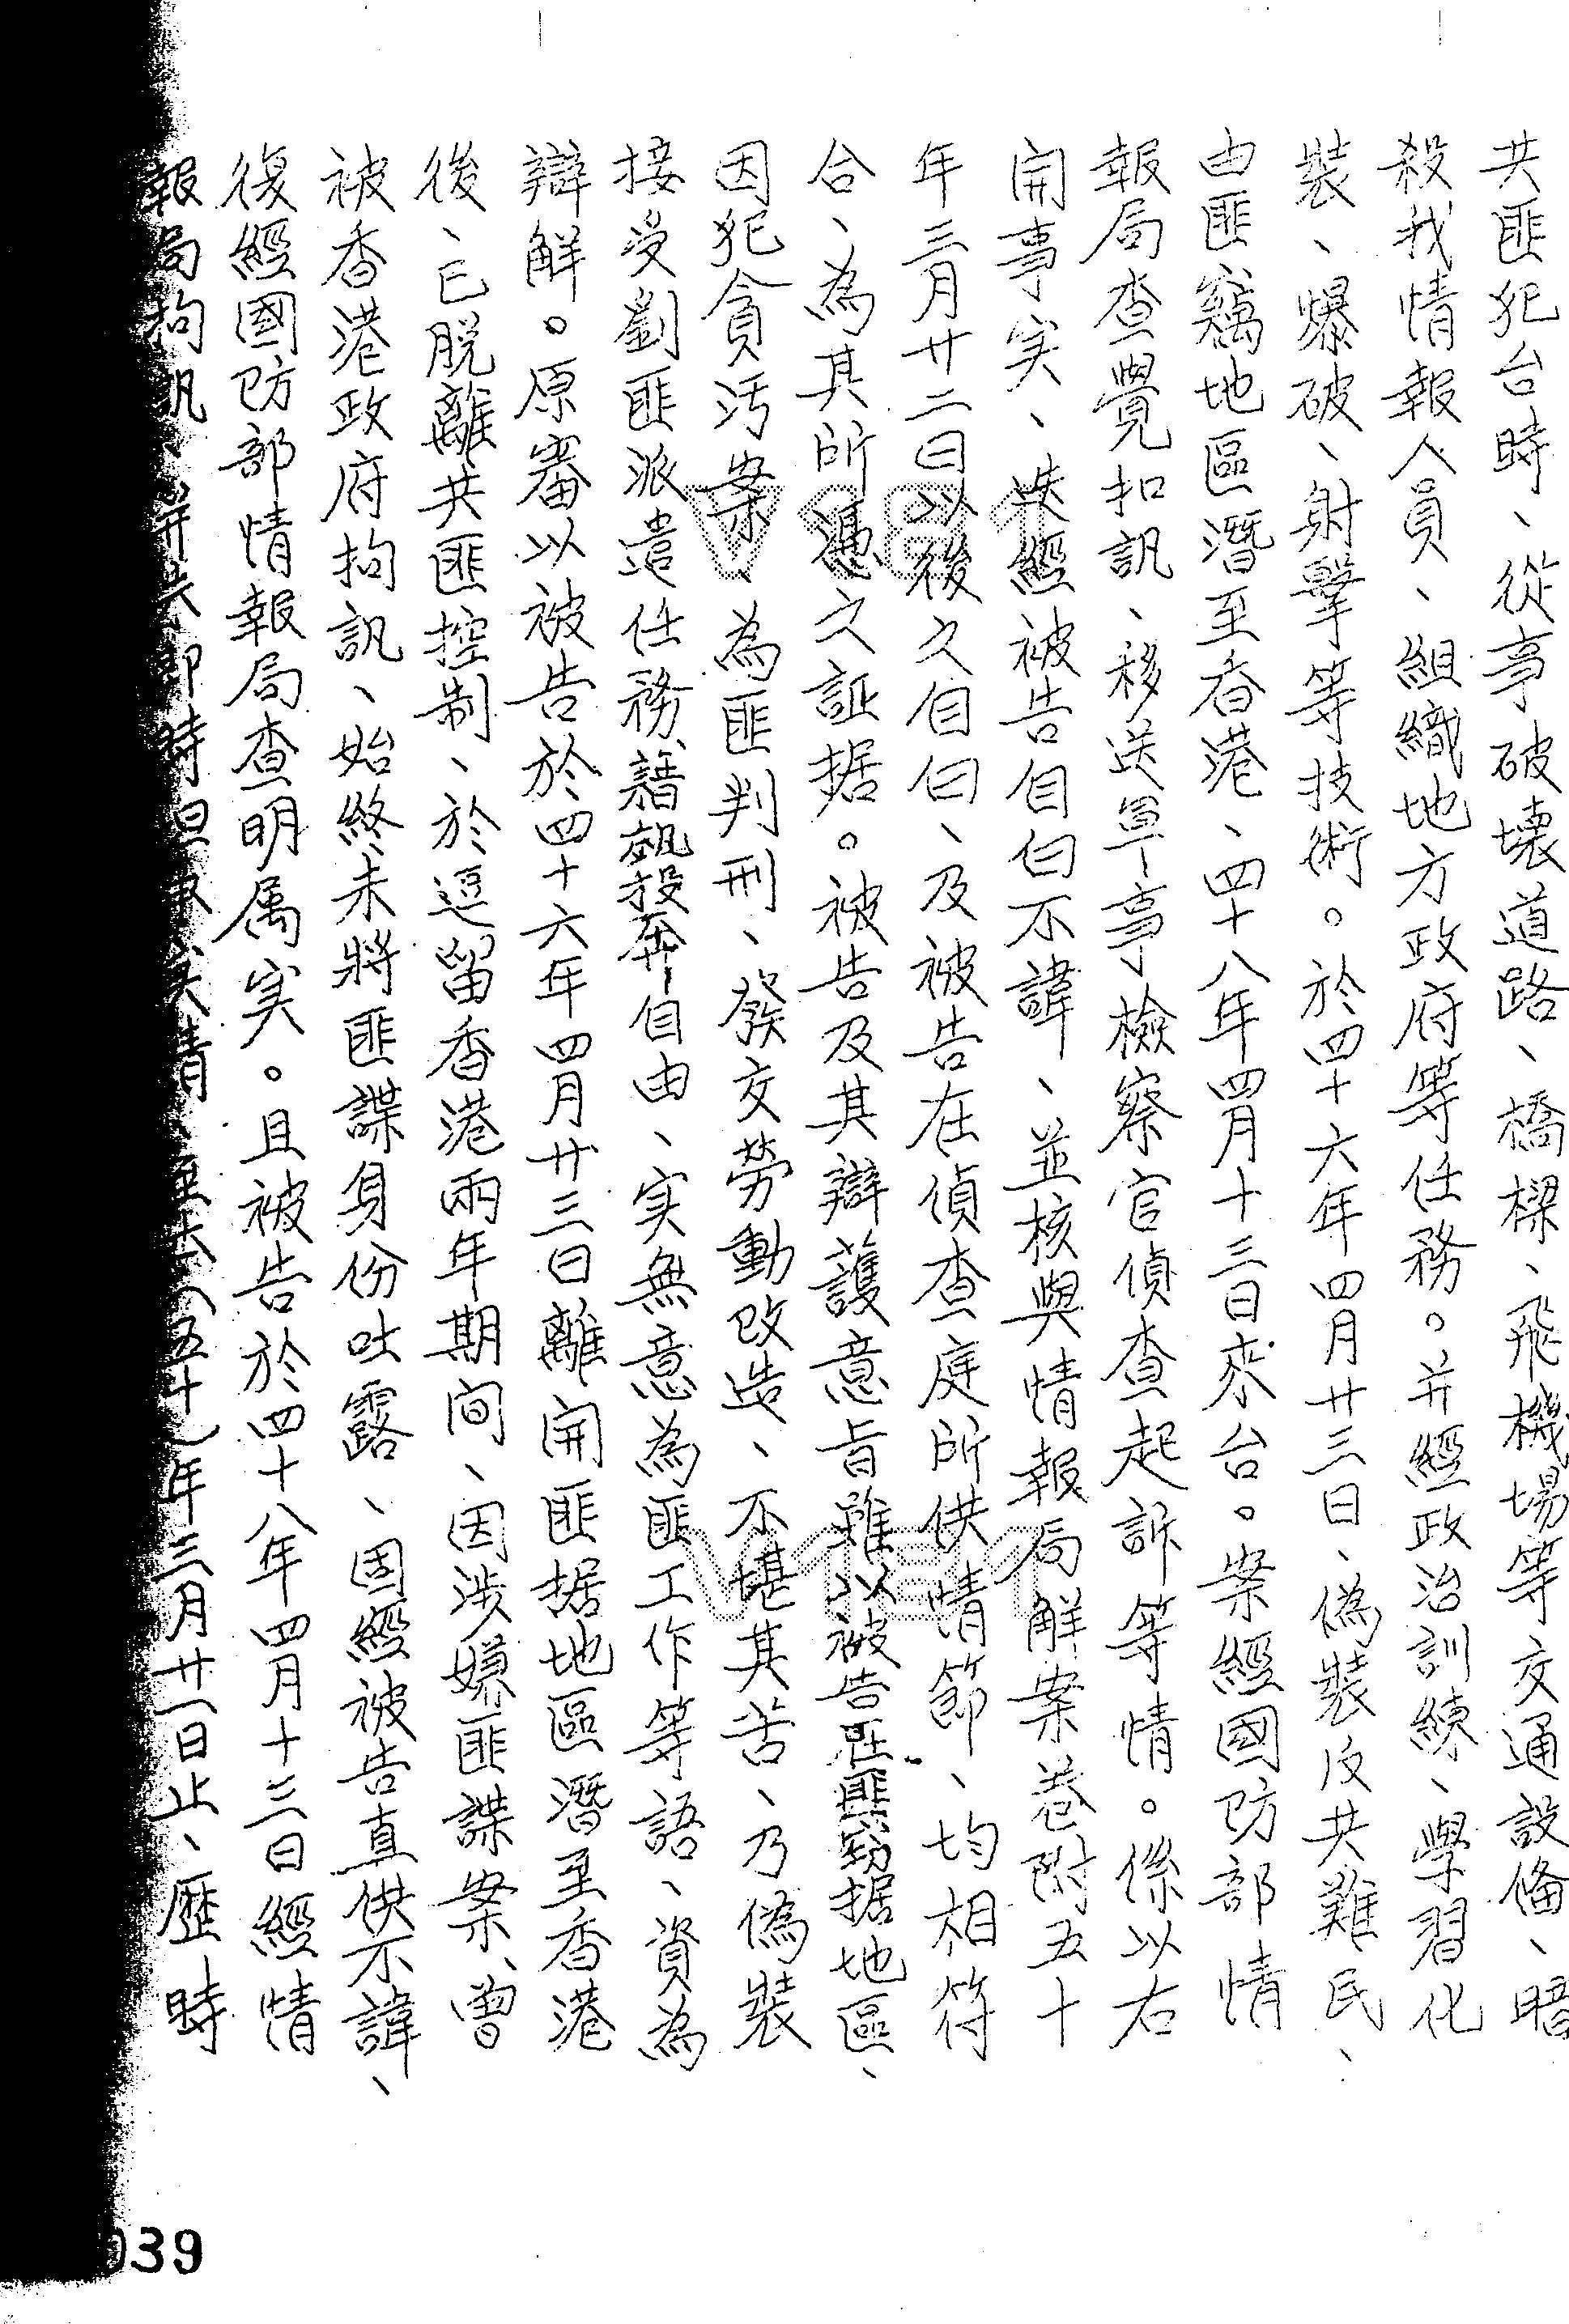 共匪犯台時、從事破壞道路、橋樑、飛機場等交通設備、暗
殺我情報人員、組織地方政府等任務。并經政治訓練、學習化
裝、爆破、射擊等技術。於四十六年四月廿三日、偽裝反共難民、
由匪竊地區潛至香港、四十八年四月十三日來台。案經國防部情
報局查覺扣訊、移送軍事檢察官偵查起訴等情。係以右
開事实、迭經被告自白不諱、並核與情報局解案卷附五十
年三月廿二日以後之自白、及被告在偵查庭所供情節、均相符
合、為其所憑之証据。被告及其辯護意旨雖以被告在匪竊据地區、
因犯貪污案、為匪判刑、發交勞動改造、不堪其苦、乃偽裝
接受劉匪派遣任務、藉机投奔自由、实無意為匪工作等語、資為
辯解。原審以被告於四十六年四月廿三日離開匪据地區潛至香港
後、已脱離共匪控制、於逗留香港兩年期间、因涉嫌匪諜案、曾
被香港政府拘訊、始終未將匪諜身份吐露、固經被告直供不諱、
復經國防部情報局查明属实。且被告於四十八年四月十三日經情
報局拘訊、并未即時坦白实情、年三月廿一日止、歷時
V181
V181
039